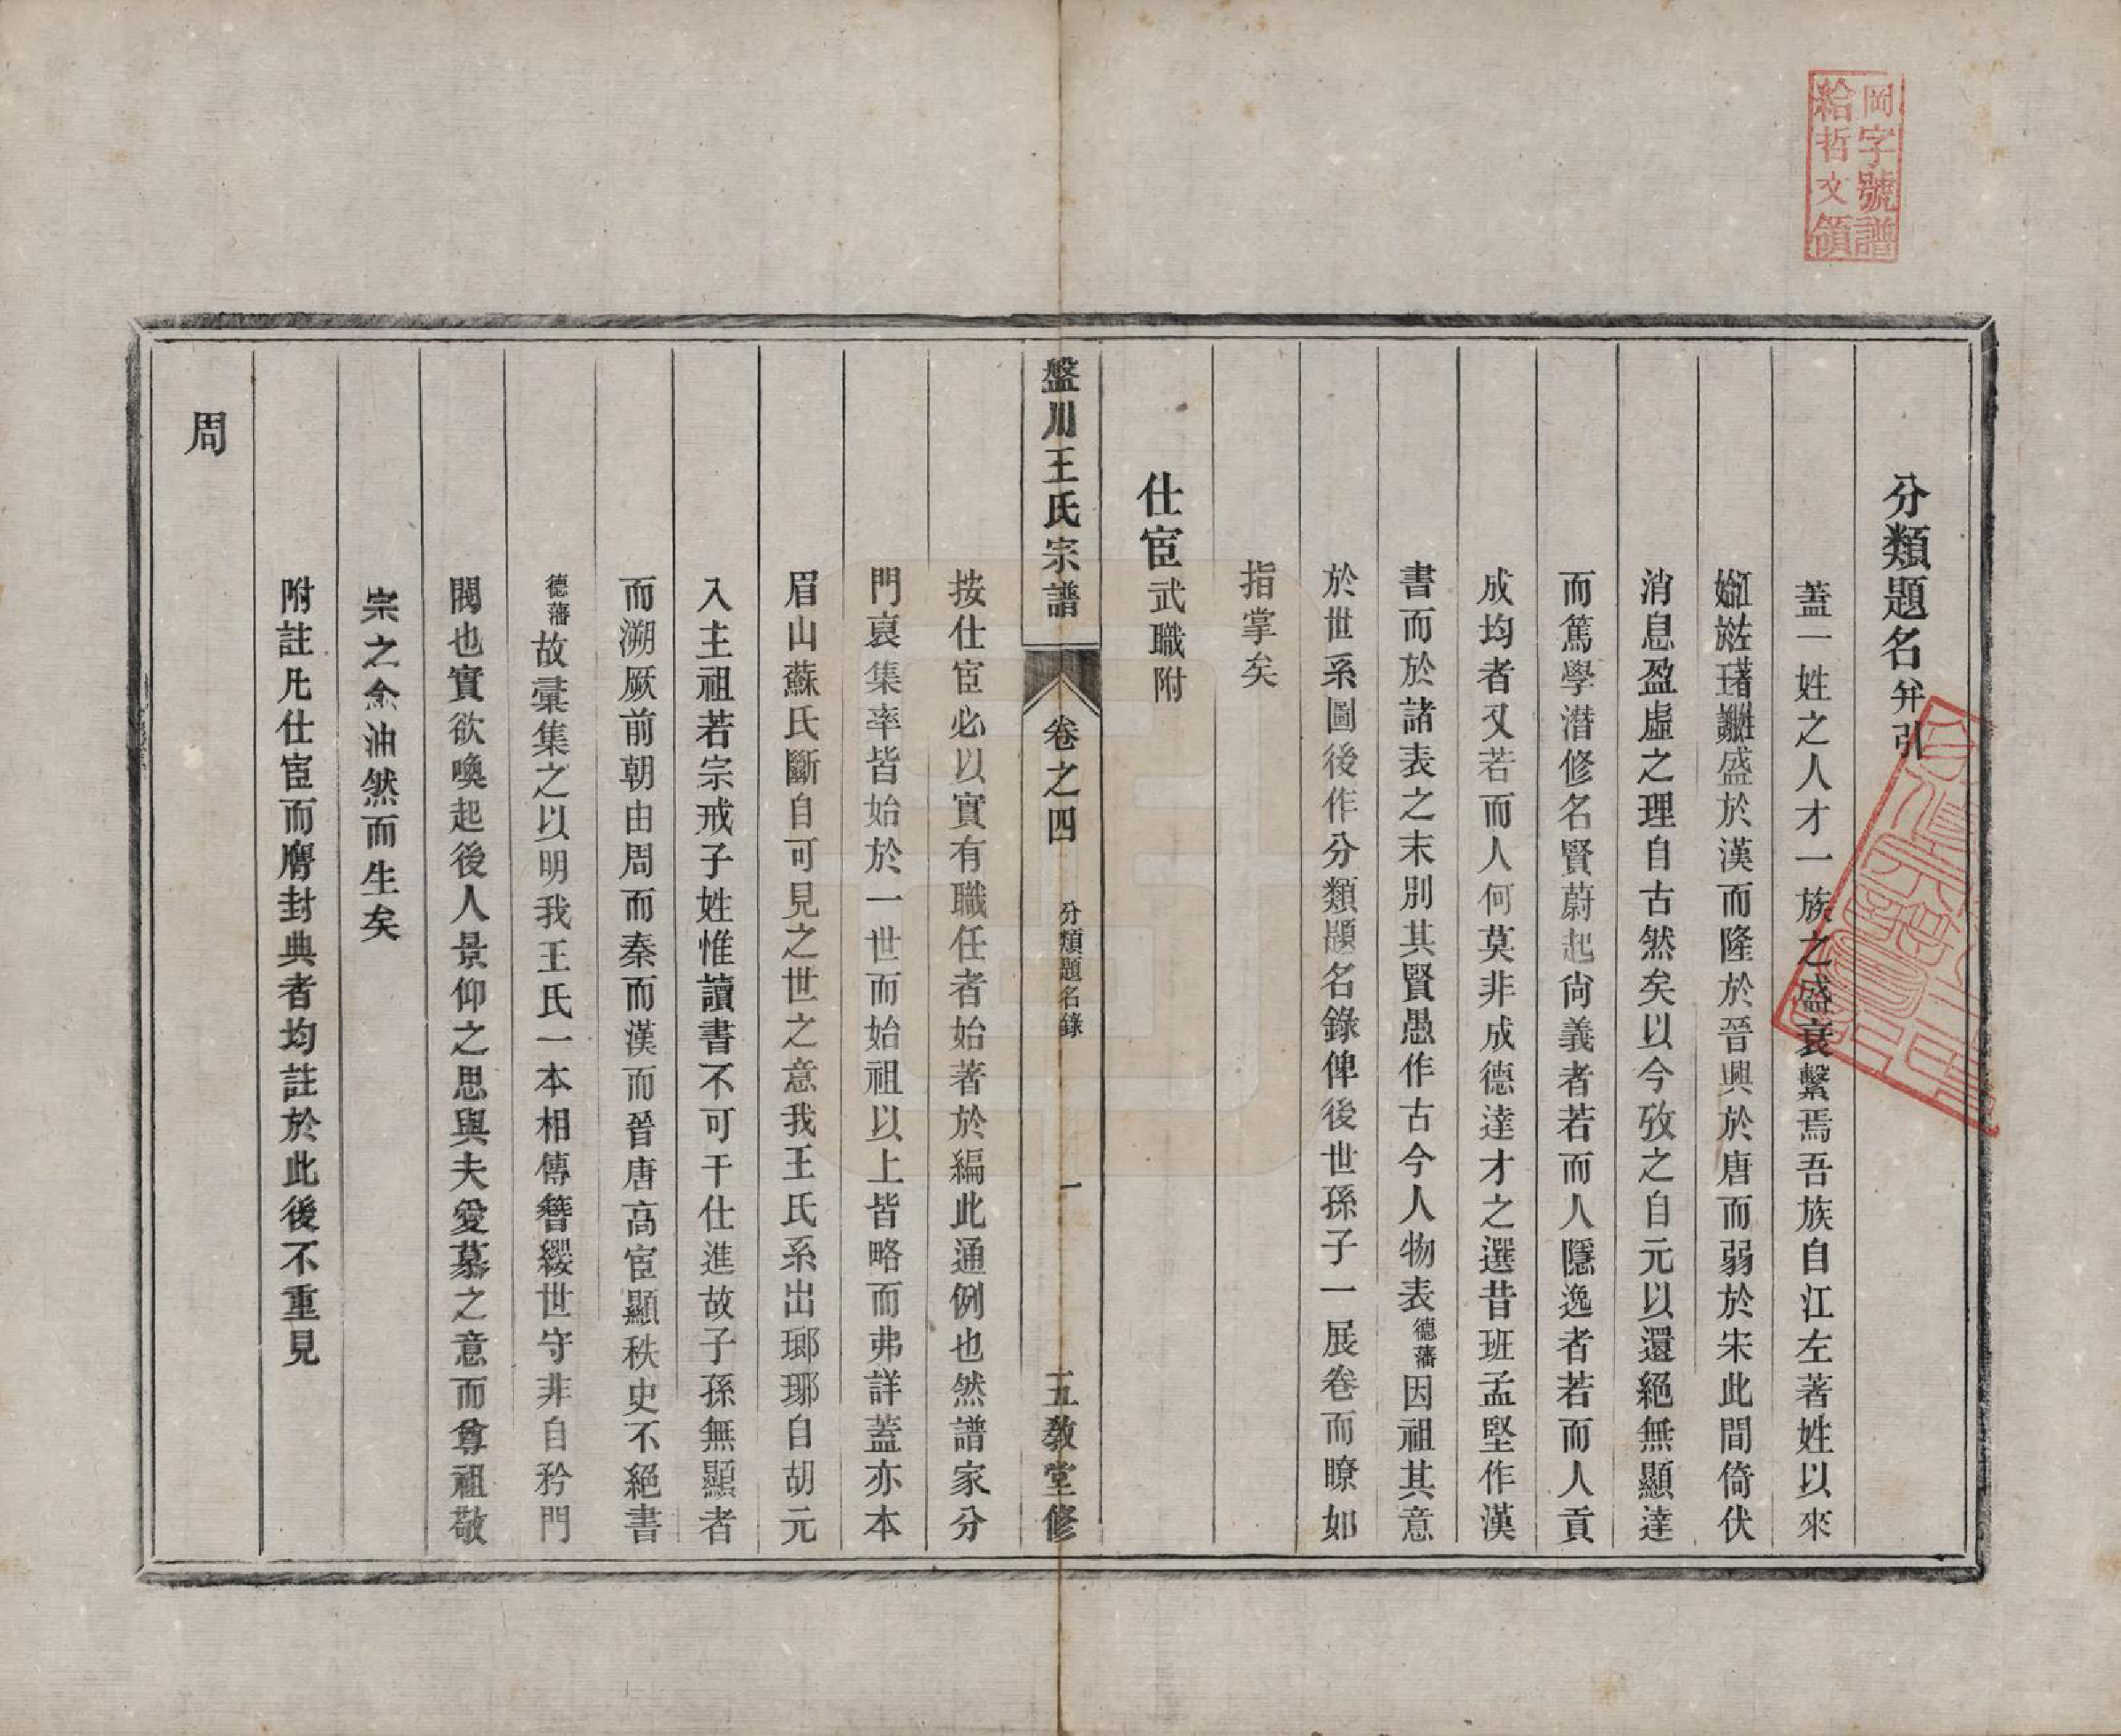 岡字號譜
給哲文領
分類題名弁引
蓋一姓之人才一族之盛衰繫焉吾族自江左著姓以來
盛於漢而隆於晉興於唐而弱於宋此間倚伏
消息盈虛之理自古然矣以今攷之自元以還絕無顯達
而篤學潛修名賢蔚起尙義者若而人隱逸者若而人貢
成均者又若而人何莫非成德達才之選昔班孟堅作漢
書而於諸表之末別其賢愚作古今人物表德藩因祖其意
於世系圖後作分類題名錄俾後世孫子一展卷而瞭如
指掌矣
仕宦武職附
盤川王氏宗譜 卷之四 分類題名錄 一 五敎堂修
按仕宦必以實有職任者始著於編此通例也然譜家分
門裒集率皆始於一世而始祖以上皆略而弗詳蓋亦本
眉山蘇氏斷自可見之世之意我王氏系出瑯琊自胡元
入主祖若宗戒子姓惟讀書不可干仕進故子孫無顯者
而溯厥前朝由周而秦而漢而晉唐高宦顯秩史不絕書
德藩故彙集之以明我王氏一本相傳簪纓世守非自矜門
閥也實欲喚起後人景仰之思與夫愛慕之意而尊祖敬
宗之念油然而生矣
附註凡仕宦而膺封典者均註於此後不重見
周